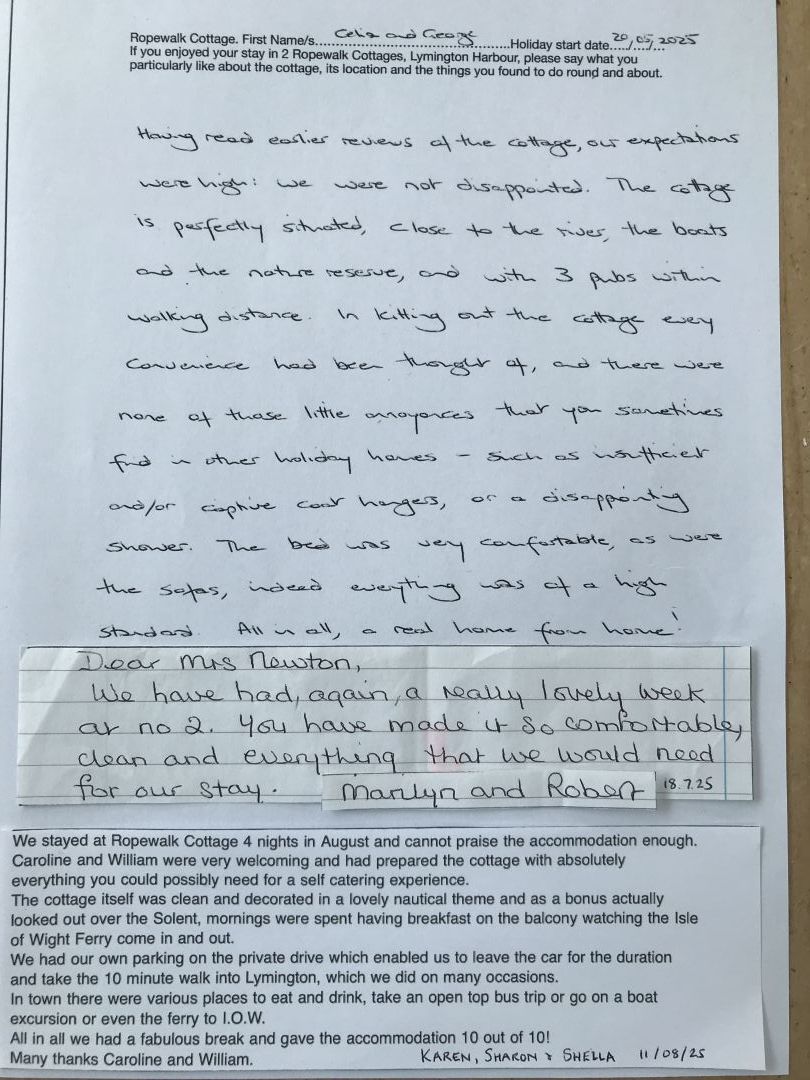 Ropewalk Cottage. First Name/s....Celia and George....Holiday start date 20/05/2025
If you enjoyed your stay in 2 Ropewalk Cottages, Lymington Harbour, please say what you
particularly like about the cottage, its location and the things you found to do round and about.
Having read earlier reviews of the cottage, our expectations
were high: we were not disappointed. The cottage
is perfectly situated, close to the river, the boats
and the nature reserve, and with 3 pubs within
walking distance. In kitting out the cottage every
convenience had been thought of, and there were
none of those little annoyances that you sometimes
find in other holiday homes – such as insufficient
and/or captive coat hangers, or a disappointing
shower. The bed was very comfortable, as were
the sofas, indeed everything was of a high
standard. All in all, a real home from home!
Dear Mrs Newton,
We have had, again, a really lovely week
at no 2. You have made it so comfortable,
clean and everything that we would need
for our stay. Marilyn and Robert 18.7.25
We stayed at Ropewalk Cottage 4 nights in August and cannot praise the accommodation enough.
Caroline and William were very welcoming and had prepared the cottage with absolutely
everything you could possibly need for a self catering experience.
The cottage itself was clean and decorated in a lovely nautical theme and as a bonus actually
looked out over the Solent, mornings were spent having breakfast on the balcony watching the Isle
of Wight Ferry come in and out.
We had our own parking on the private drive which enabled us to leave the car for the duration
and take the 10 minute walk into Lymington, which we did on many occasions.
In town there were various places to eat and drink, take an open top bus trip or go on a boat
excursion or even the ferry to I.O.W.
All in all we had a fabulous break and gave the accommodation 10 out of 10!
Many thanks Caroline and William. KAREN, SHARON & SHELLA 11/08/25